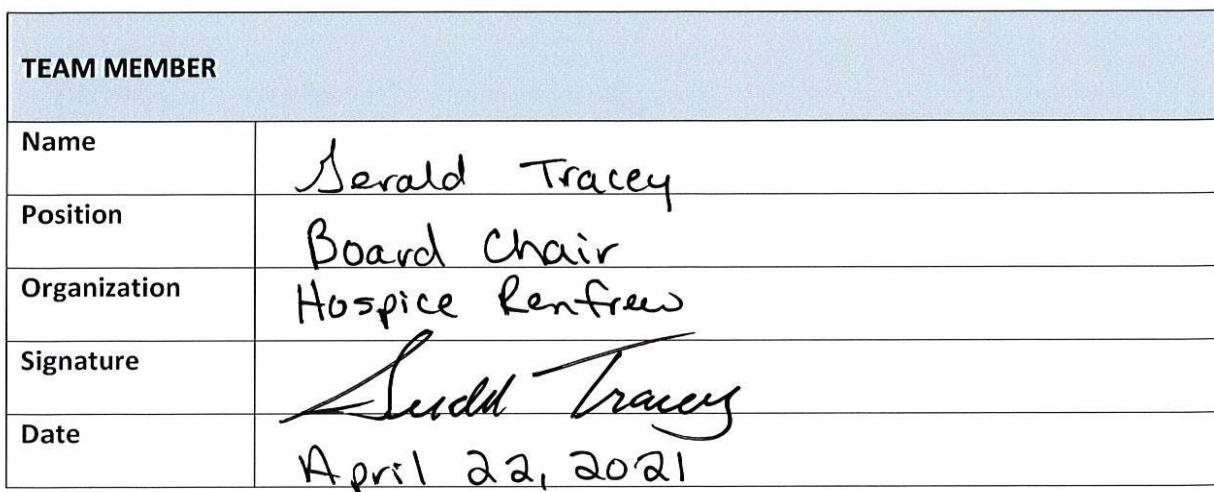 TEAM MEMBER
Name Gerald Tracey
Position Board Chair
Organization Hospice Renfrew
Signature Gerald Tracey
Date April 22, 2021